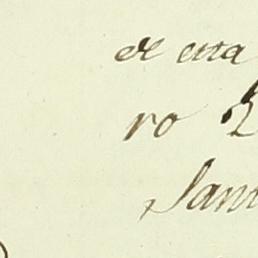 de esta
ro
San